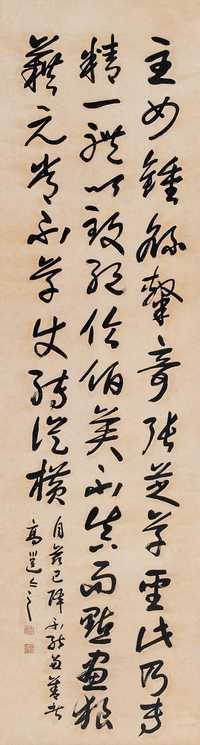 至如鍾繇隸奇張芝草聖此乃專
精一體以致絕倫伯英不真而點畫狼
藉元常不草使轉縱橫
自茲已降不能兼善者
高邕之